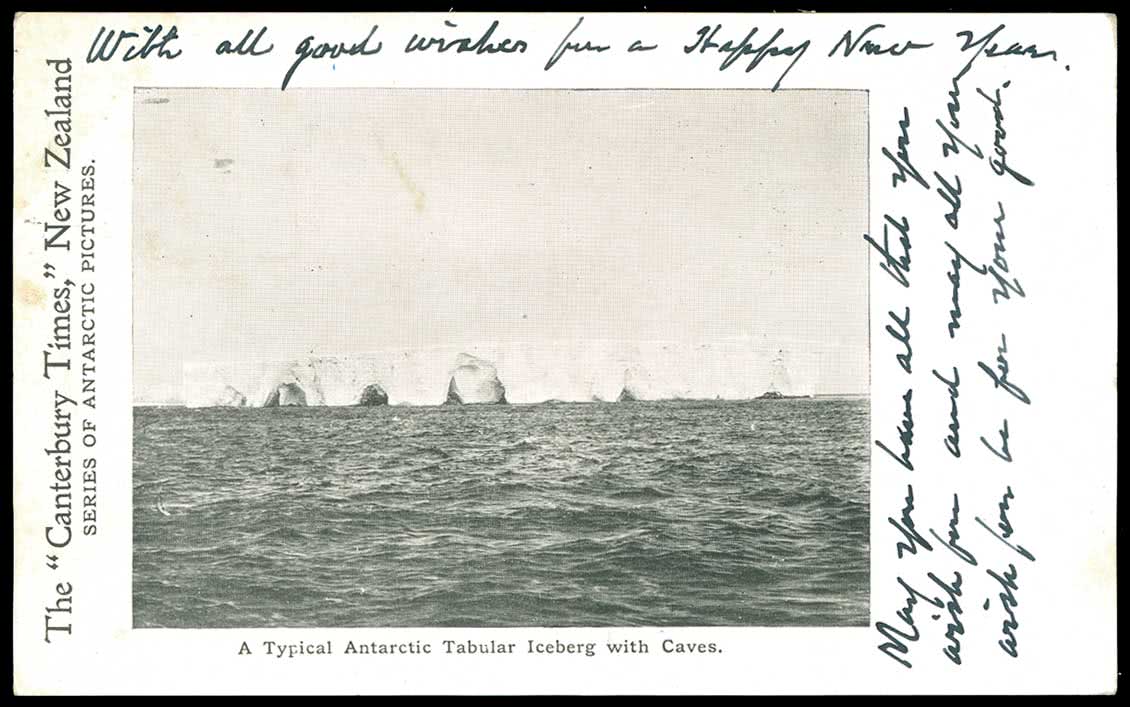 With all good wishes for a Happy New Year.
The "Canterbury Times," New Zealand
SERIES OF ANTARCTIC PICTURES.
A Typical Antarctic Tabular Iceberg with Caves.
May you have all that you
wish for and may all you
wish for be for your good.